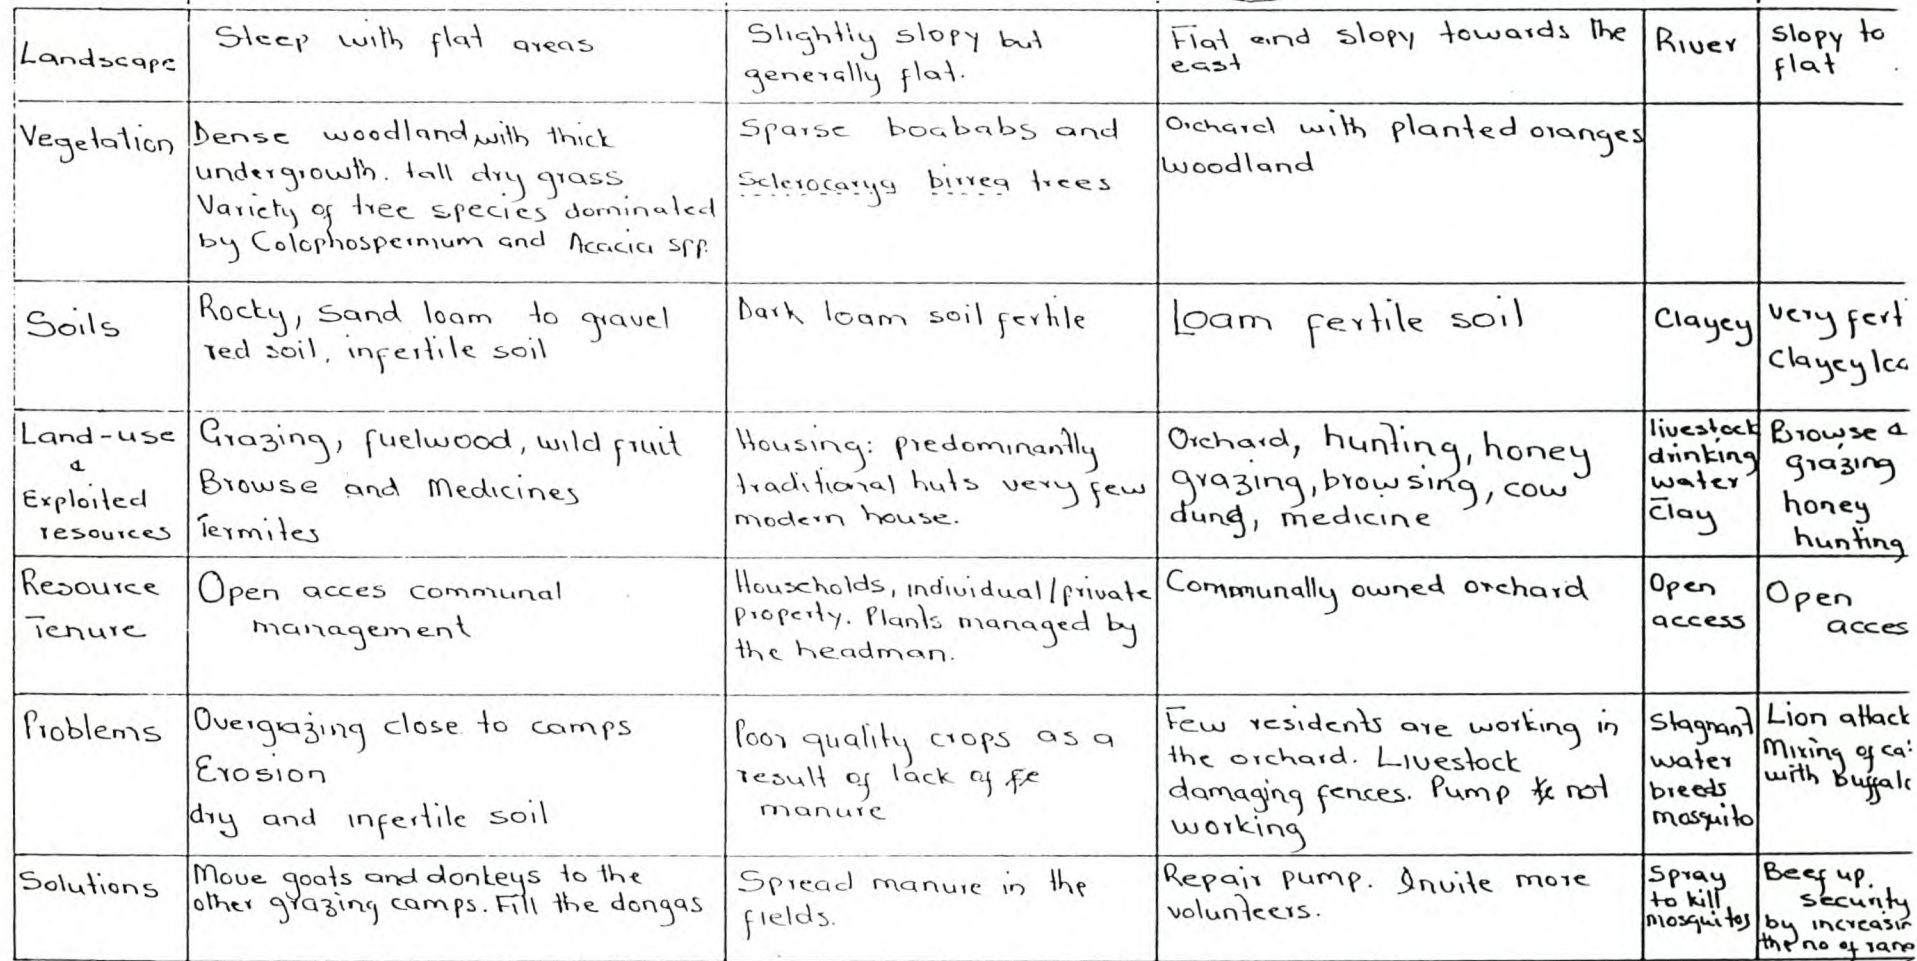 Landscape
Steep with flat areas
Slightly slopy but
generally flat.
Flat and slopy towards the
east
River
slopy to
flat
Vegetation
Dense woodland with thick
undergrowth. tall dry grass
Variety of tree species dominated
by Colophospermum and Acacia spp.
Sparse boababs and
Sclerocarya birrea trees
Orchard with planted oranges
woodland
Soils
Rocky, sand loam to gravel
red soil, infertile soil
Dark loam soil fertile
Loam fertile soil
Clayey
very fert
Clayey loa
Land-use
&
Exploited
resources
Grazing, fuelwood, wild fruit
Browse and Medicines
Termites
Housing: predominantly
traditional huts very few
modern house.
Orchard, hunting, honey
grazing, browsing, cow
dung, medicine
livestock
drinking
water
Clay
Browse &
grazing
honey
hunting
Resource
Tenure
Open acces communal
management
Households, individual/private
property. Plants managed by
the headman.
Communally owned orchard
Open
access
Open
acces
Problems
Overgrazing close to camps
Erosion
dry and infertile soil
Poor quality crops as a
result of lack of
manure
Few residents are working in
the orchard. Livestock
damaging fences. Pump not
working
Stagnant
water
breeds
mosquito
Lion attack
Mixing of ca
with buffalo
Solutions
Move goats and donkeys to the
other grazing camps. Fill the dongas
Spread manure in the
fields.
Repair pump. Invite more
volunteers.
Spray
to kill
mosquitos
Beef up.
security
by increasin
the no of rang